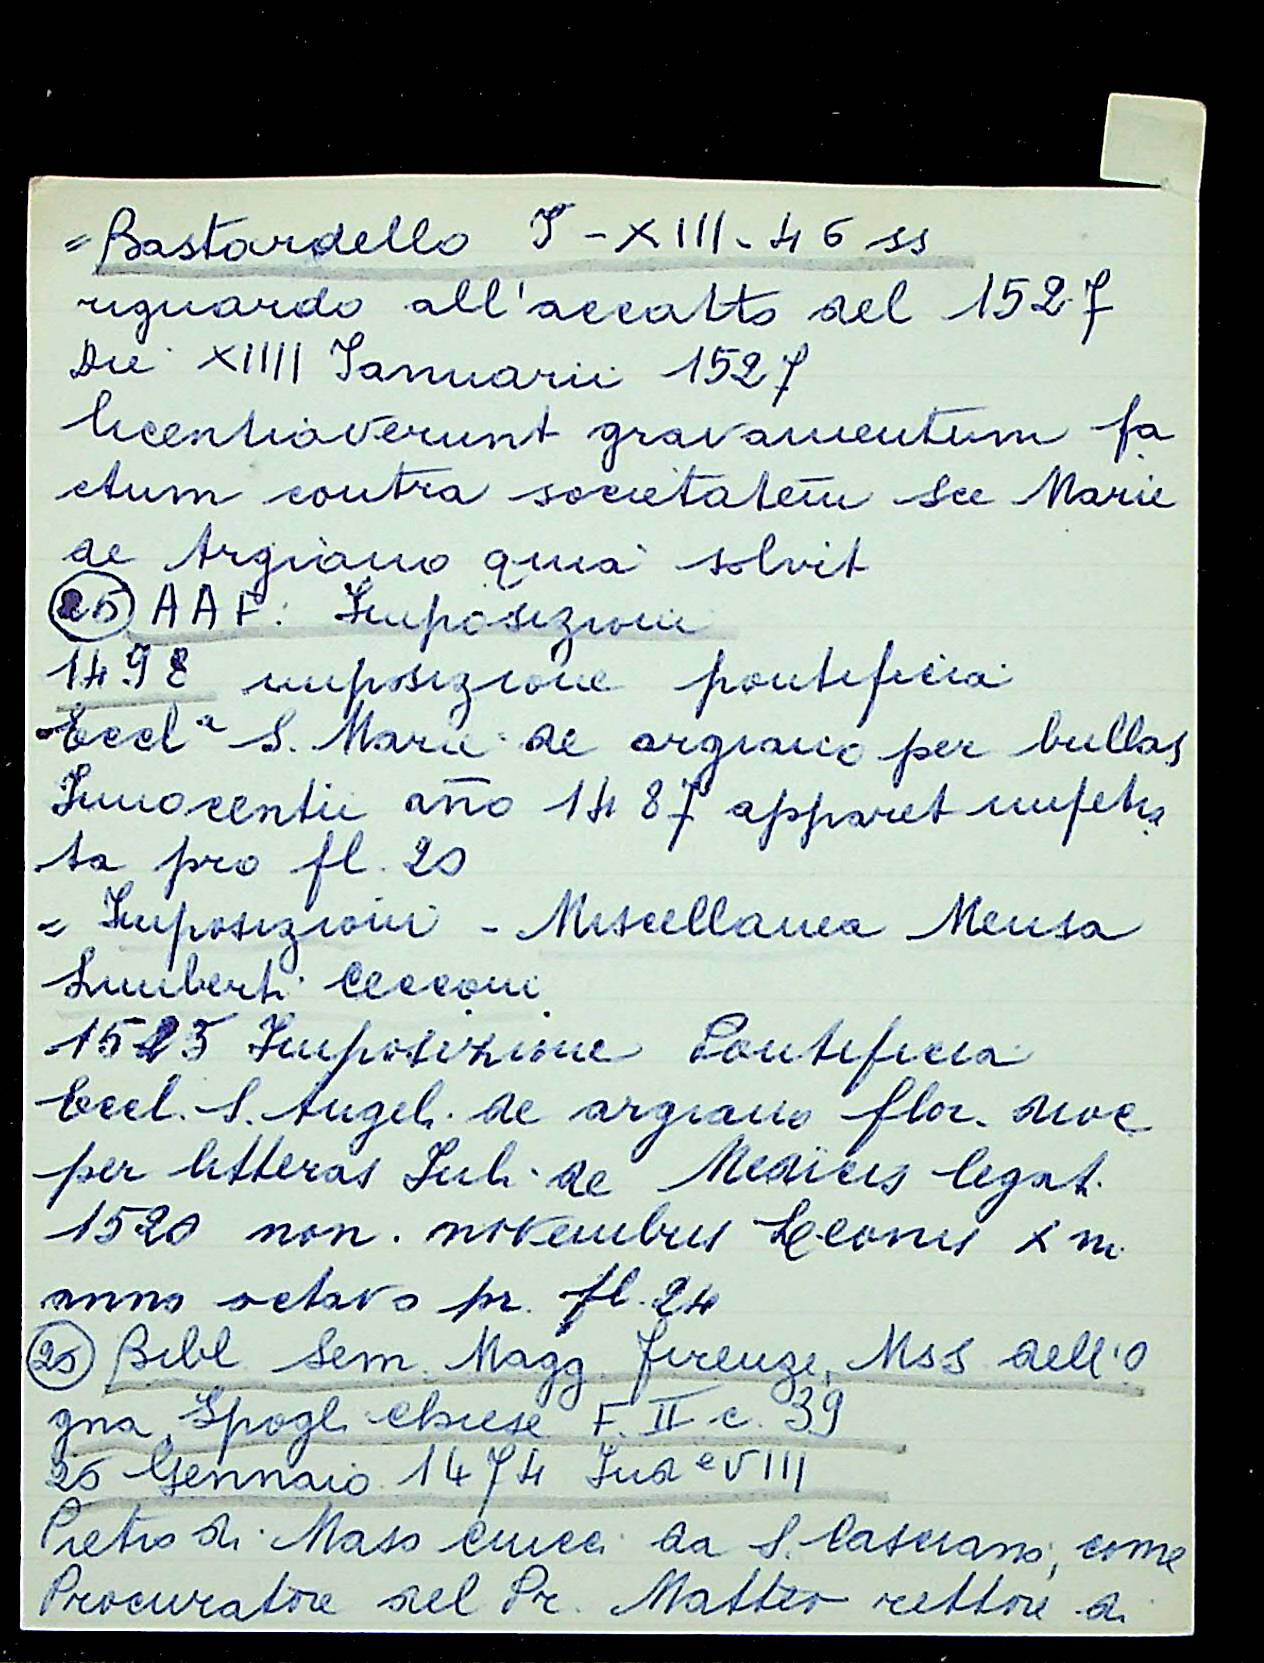 = Bastardello I - XIII - 46 ss
riguardo all'accatto del 1527
Die XIIII Ianuarii 1527
licentiaverunt gravamentum fa
ctum contra societatem sce Marie
de Argiano quia solvit
25 AAF: Imposizioni
1498 imposizione pontificia
- Eccla S. Marie de argiano per bullas
Innocentii año 1487 apparet impetra
ta pro fl. 20
= Imposizioni - Miscellanea Mensa
Limberti Cecconi
1523 Imposizione Pontificia
Eccl. S. Angeli de argiano flor. dioc
per litteras Iuli de Medicis legat.
1520 non. novembris Leonis X m.
anno octavo pr. fl. 24
26 Bibl. Sem. Magg. Firenze, Mss dell'O
gna, Spogli Chiese F. II c. 39
26 Gennaio 1474 Inde VIII
Pietro di Maso Ciucci da S. Casciano, come
Procuratore del Pr. Matteo rettore di